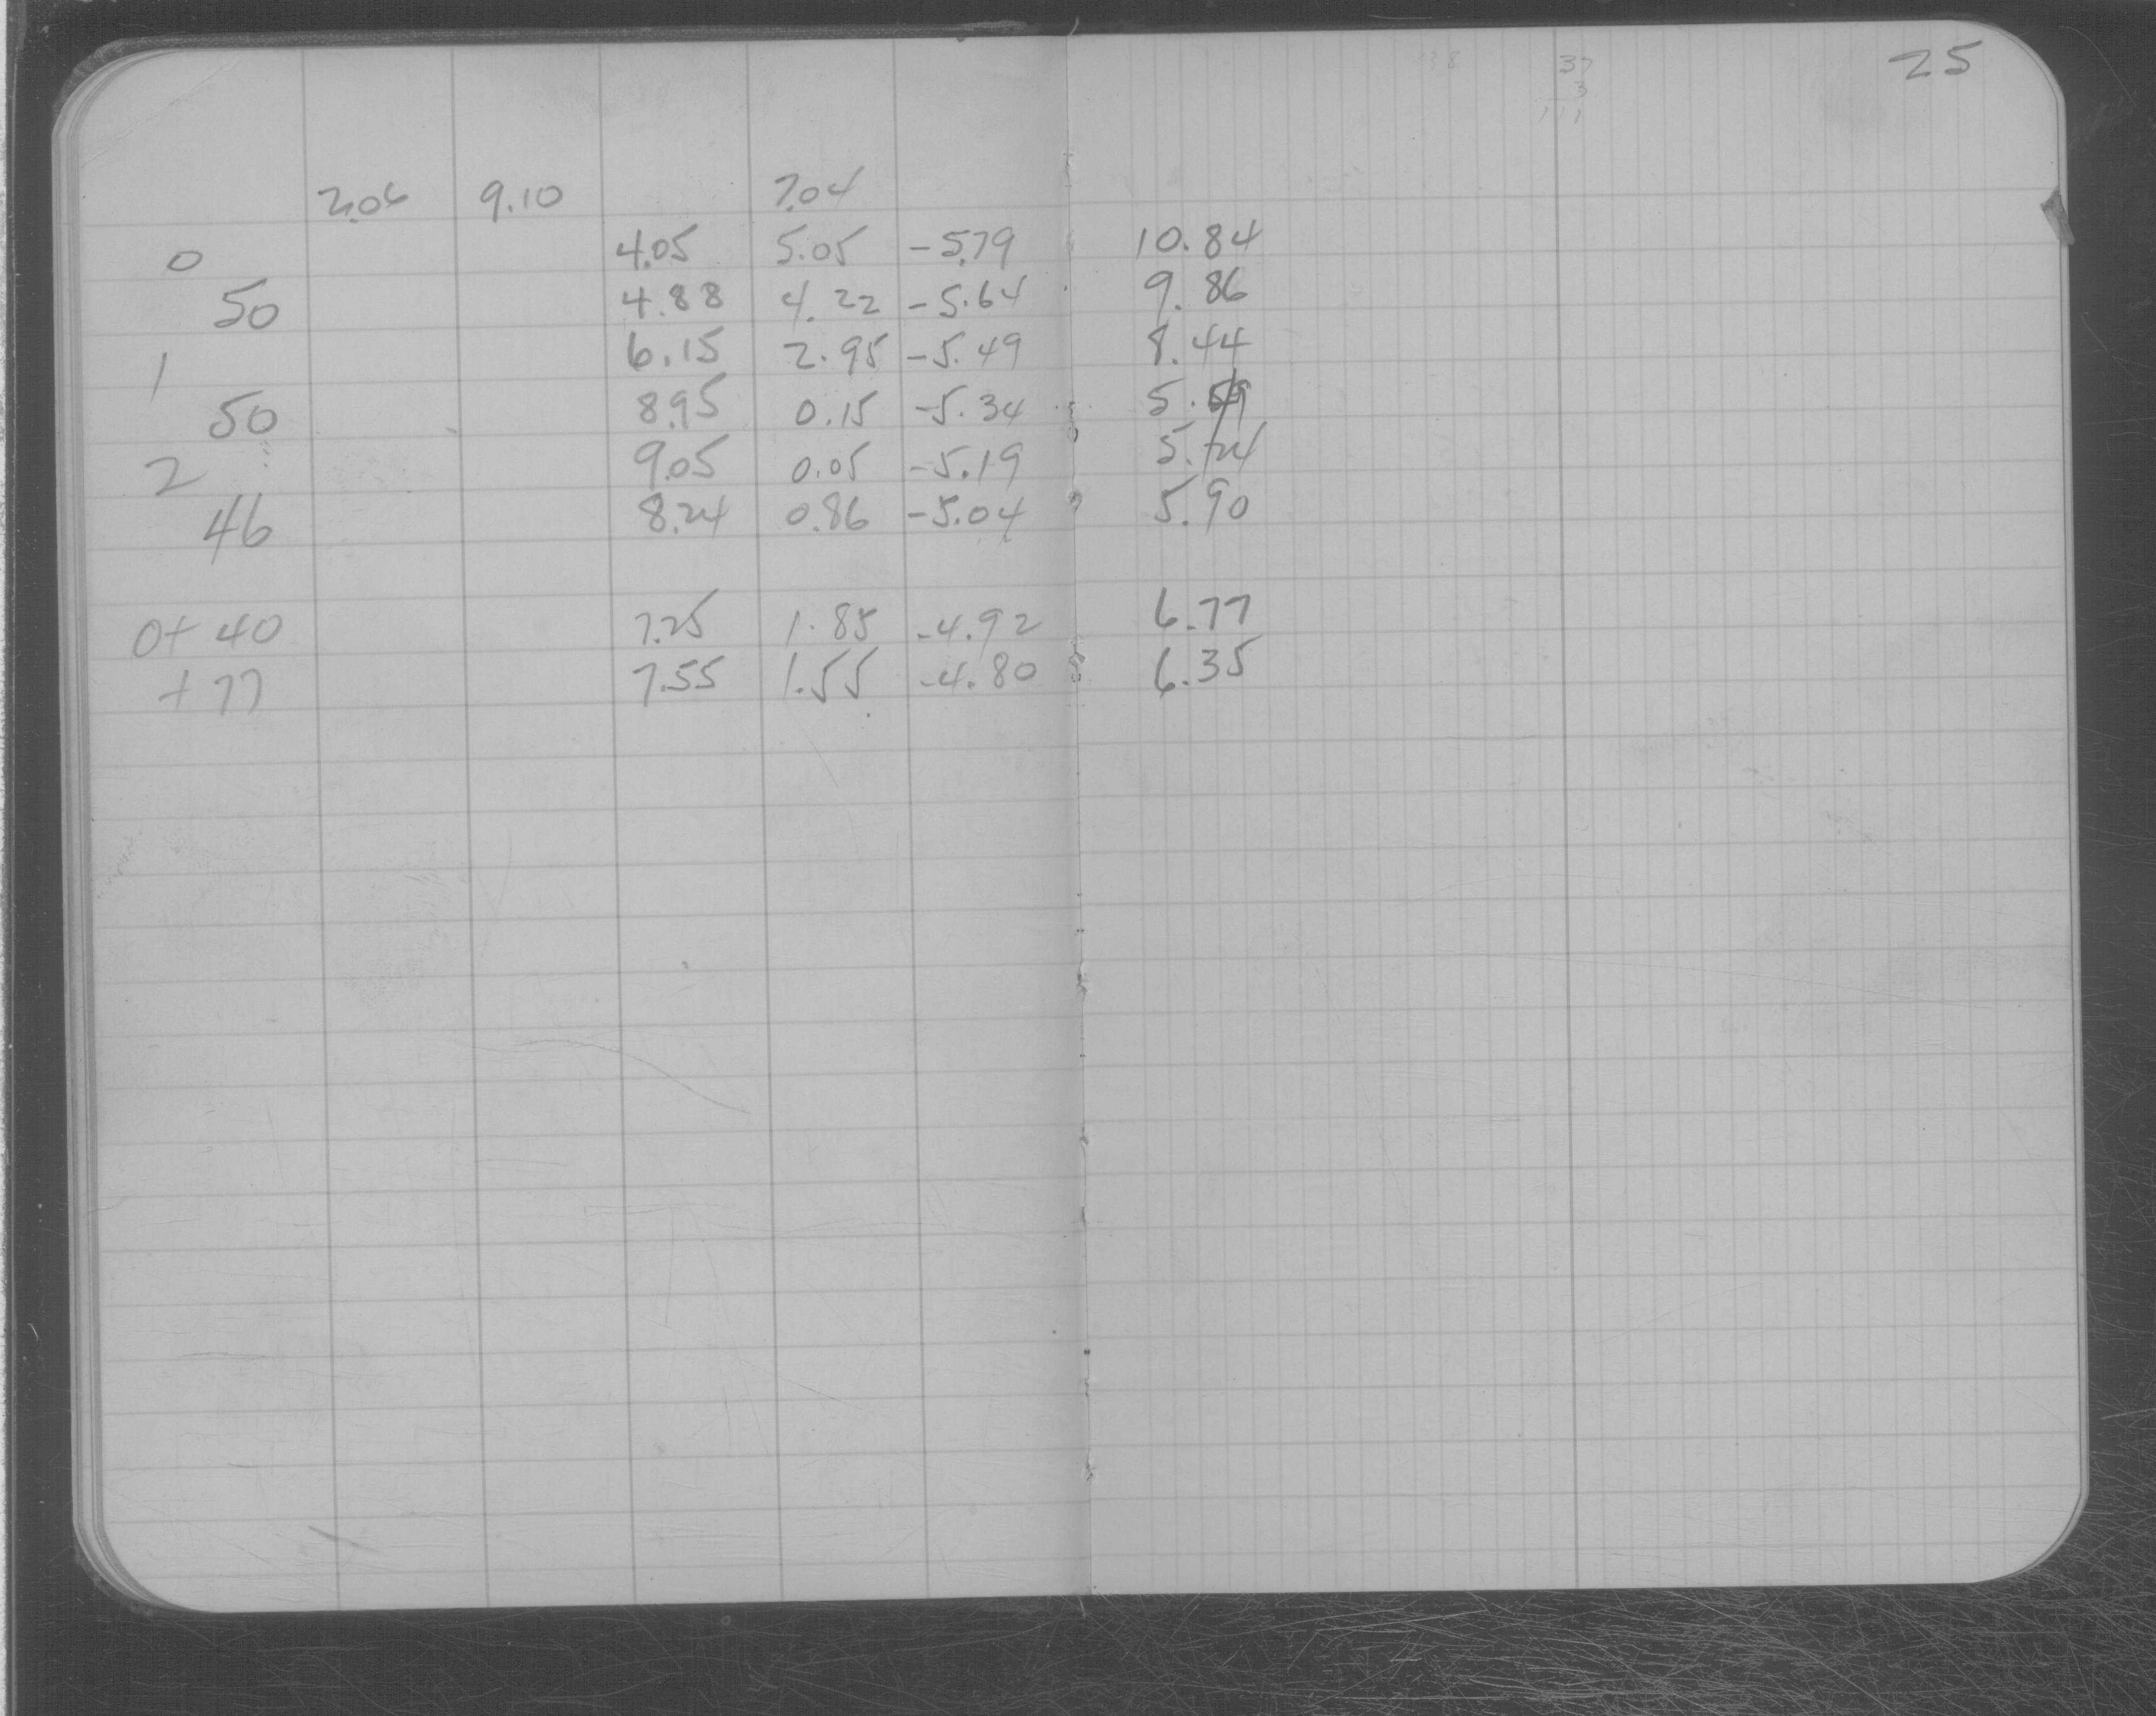 25
37
3
111
2.06 9.10 7.04
0 4.05 5.05 -5.79 10.84
50 4.88 4.22 -5.64 9.86
1 6.15 2.95 -5.49 8.44
50 8.95 0.15 -5.34 5.49
2 9.05 0.05 -5.19 5.24
46 8.24 0.86 -5.04 5.90
0+40 7.25 1.85 -4.92 6.77
+77 7.55 1.55 -4.80 6.35